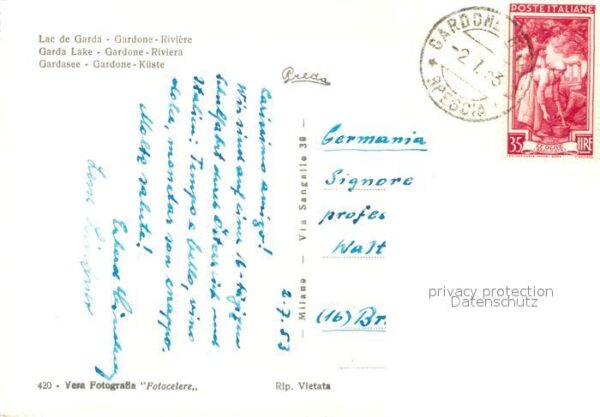 Lac de Garda - Gardone-Rivière
Garda Lake - Gardone-Riviera
Gardasee - Gardone-Küste
Preda
GARDONE
-2.7.53
BRESCIA
POSTE ITALIANE
35 LIRE
2.7.53
Carissimo amigo!
Wir sind auf einer 16-tägigen
durch Österreich und
Italien: Tempo e bello, vino
dolce, monetas son troppo.
Molte salute!
Milano - Via Sangallo 38 -
Germania
Signore
profes
Walt
(16) Br
privacy protection
Datenschutz
420 - Vera Fotografia "Fotocelere„
Rip. Vietata